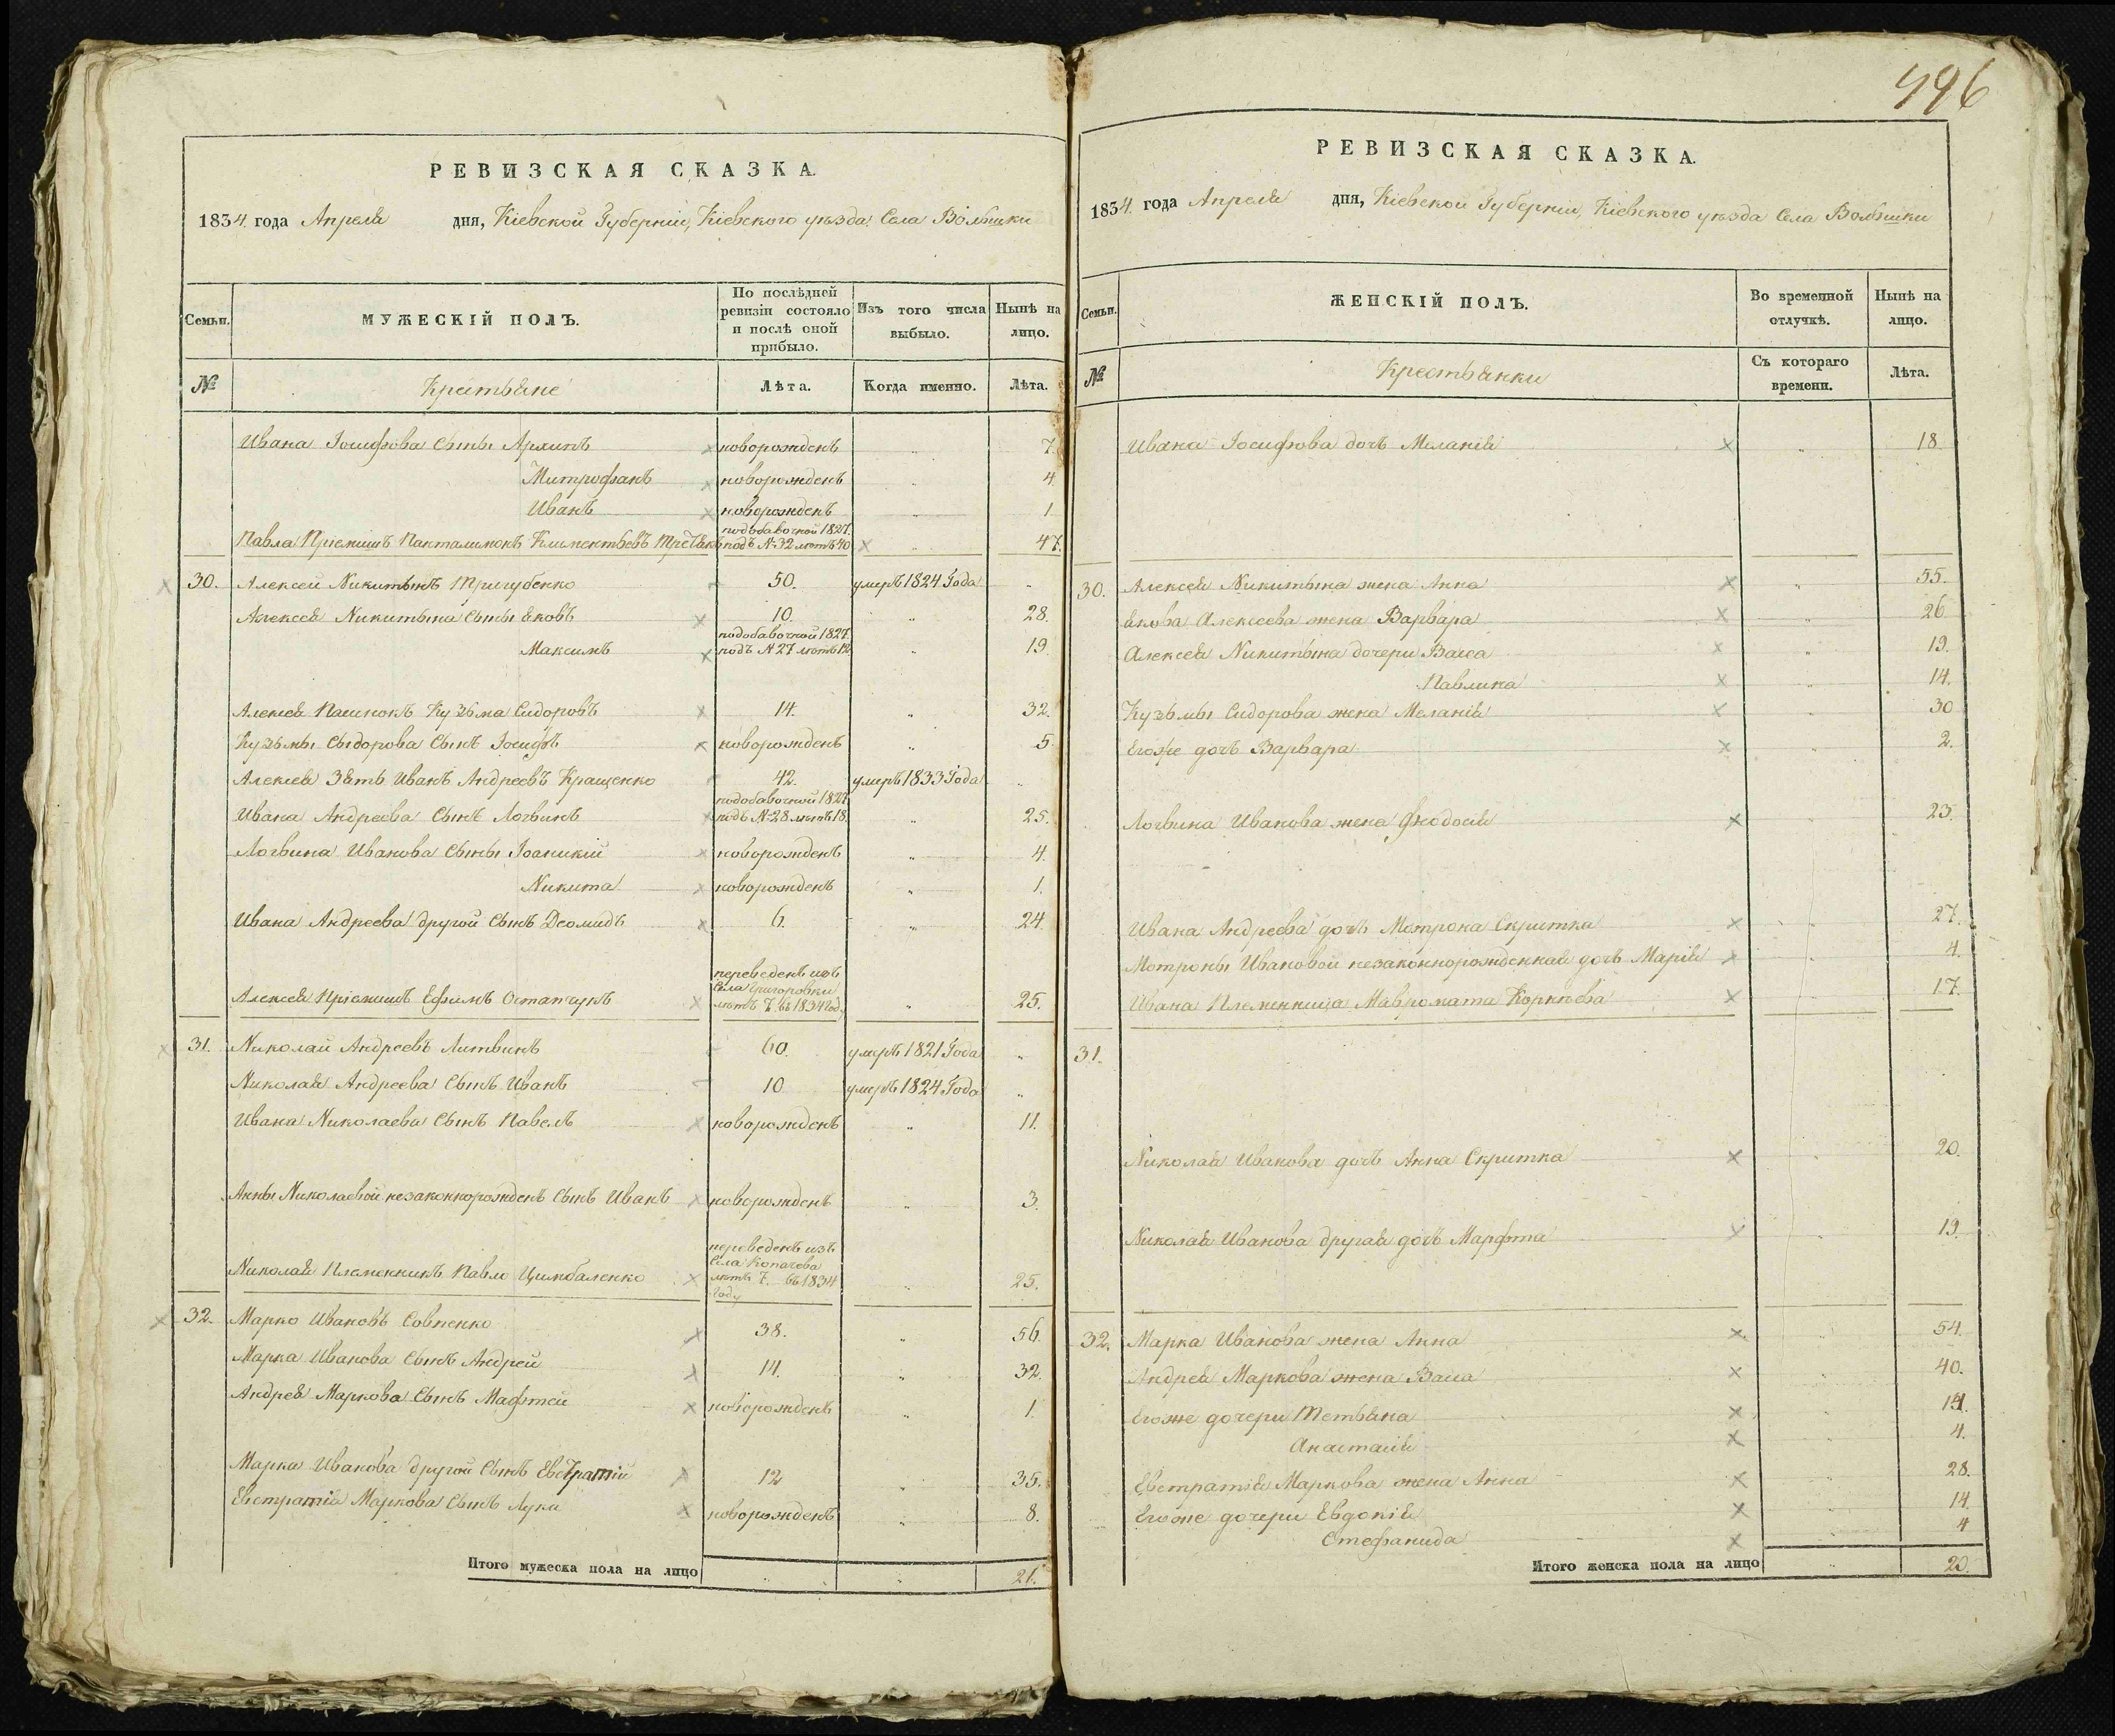 496
РЕВИЗСКАЯ СКАЗКА.
1834. года Апреля дня, Кіевской Губерніи, Кіевского уѣзда Села
Семьи. МУЖЕСКІЙ ПОЛЪ. По послѣдней ревизіи состояло и послѣ оной прибыло. Изъ того числа выбыло. Нынѣ на лицо.
№ Крестьяне Лѣта. Когда именно. Лѣта.
Ивана Іосифова Сыны Архипъ новорожденъ „ 7.
Митрофанъ новорожденъ „ 4.
Иванъ новорожденъ „ 1.
Павла Пріемишъ Панталимонъ Климентьевъ подобавочной 1827. подъ №32 лѣтъ 40 „ 47.
30. Алексей Никитинъ Пригубенко 50. умеръ 1824 Года „
Алексея Никитина Сыны Яковъ 10. „ 28.
Максимъ подобавочной 1827. подъ №27 лѣтъ 12 „ 19.
Алексея Пасинокъ Кузьма Сидоровъ 14. „ 32.
Кузьмы Сыдорова Сынъ Іосифъ новорожденъ „ 5.
Алексея Зять Иванъ Андреевъ Кращенко 42. умеръ 1833 Года „
Ивана Андреева Сынъ Логвинъ подобавочной 1827 подъ №28 лѣтъ 18. „ 25.
Логвина Иванова Сыны Іоаникій новорожденъ „ 4.
Никита новорожденъ „ 1.
Ивана Андреева другой Сынъ Деомидъ 6. „ 24.
Алексея Пріемишъ Ефимъ Остапчукъ переведенъ изъ Села Григоровки лѣтъ 7. въ 1834 год. „ 25.
31. Николай Андреевъ Литвинъ 60. умеръ 1821 Года „
Николая Андреева Сынъ Иванъ 10 умеръ 1824 Года „
Ивана Николаева Сынъ Павелъ новорожденъ „ 11.
Анны Николаевой незаконнорожденъ Сынъ Иванъ новорожденъ „ 3.
Николая Племенникъ Павло Цимбаленко переведенъ изъ Села Копачева лѣтъ 7. въ 1834 Году „ 25.
32. Марко Ивановъ Совпенко 38. „ 56.
Марка Иванова Сынъ Андрей 14. „ 32.
Андрея Маркова Сынъ Мафтей новорожденъ „ 1.
Марка Иванова другой Сынъ Евстратій 12 „ 35.
Евстратія Маркова Сынъ Лука новорожденъ „ 8.
Итого мужеска пола на лицо „ „ 21.
РЕВИЗСКАЯ СКАЗКА.
1834. года Апреля дня, Кіевской Губерніи, Кіевского уѣзда Села
Семьи. ЖЕНСКІЙ ПОЛЪ. Во временной отлучкѣ. Нынѣ на лицо.
№ Крестьянки Съ котораго времени. Лѣта.
Ивана Іосифова дочь Меланія „ 18
30. Алексея Никитина жена Анна „ 55.
Якова Алексеева жена Варвара „ 26
Алексея Никитина дочери Васса „ 19.
Павлина „ 14.
Кузьмы Сидорова жена Меланія „ 30
Егоже дочь Варвара „ 2.
Логвина Иванова жена Феодосія „ 23.
Ивана Андреева дочь Мотрона Скритка „ 27.
Мотроны Ивановой незаконнорожденная дочь Марія „ 4.
Ивана Племенница Мавромата Корнѣева „ 17.
31.
Николая Иванова дочь Анна Скритка 20.
Николая Иванова другая дочь Марфта 19.
32. Марка Иванова жена Анна „ 54.
Андрея Маркова жена Васса „ 40.
Егоже дочери Тетьяна „ 14.
Анастасія „ 4.
Евстратія Маркова жена Анна „ 28.
Егоже дочери Евдокія „ 14.
Стефанида 4
Итого женска пола на лицо „ 20.